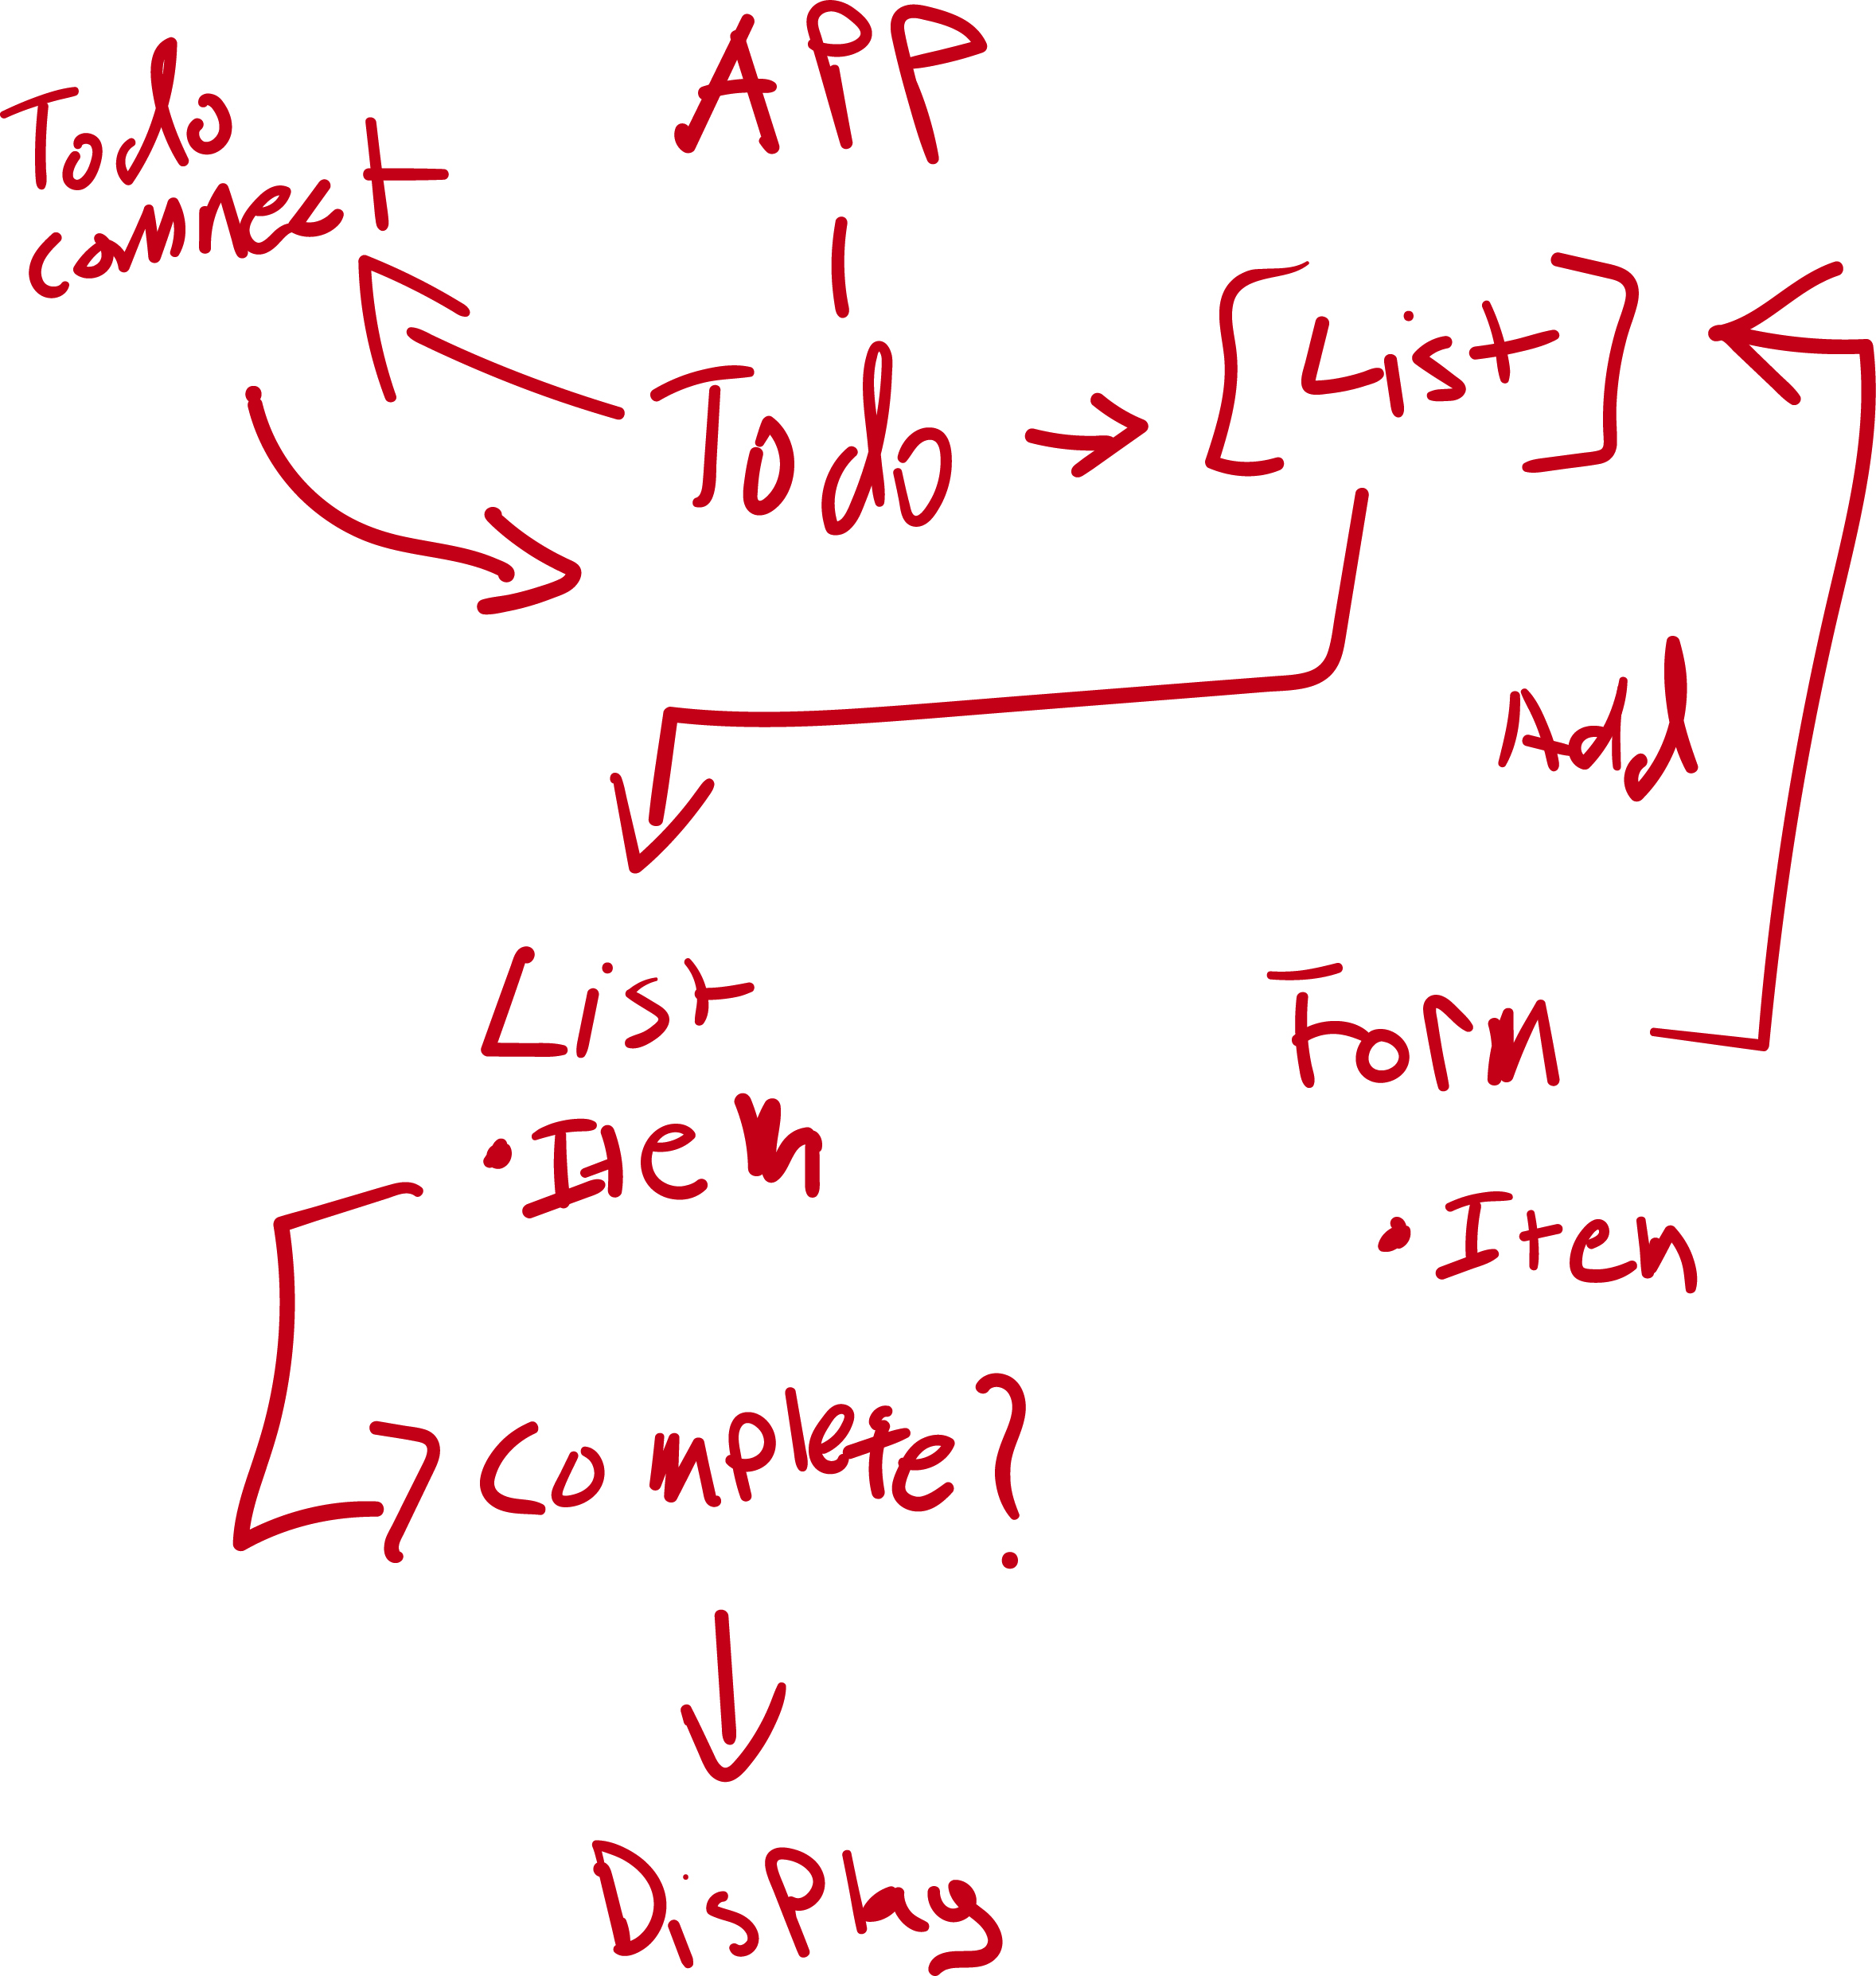 APP
Todo
connect
Todo
[List]
Add
List
Form
• Item
• Item
Complete?
Display